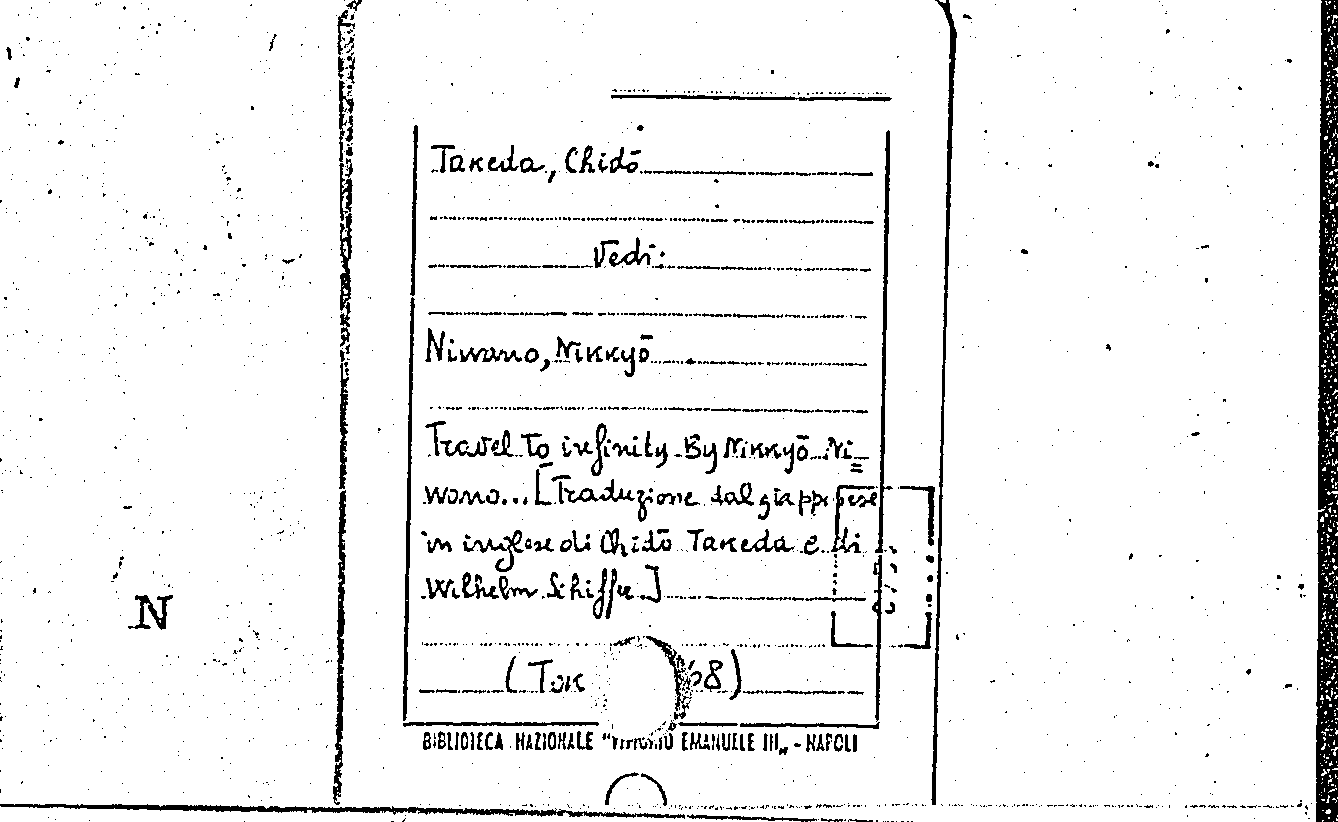 Takeda, Chidō
Vedi:
Niwano, Nikkyō
Travel to infinity By Nikkyō Ni=
wano... [Traduzione dal giapponese
in inglese di Chidō Takeda e di
Wilhelm Schiffer]
(Tok 68)
N
BIBLIOTECA NAZIONALE "VITTORIO EMANUELE III„ - NAPOLI